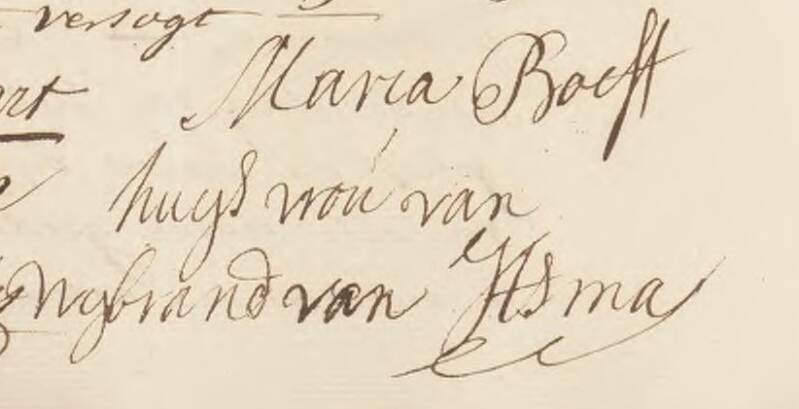 versogt
Maria Boefft
huijs vrou van
Wybrand van Itsma